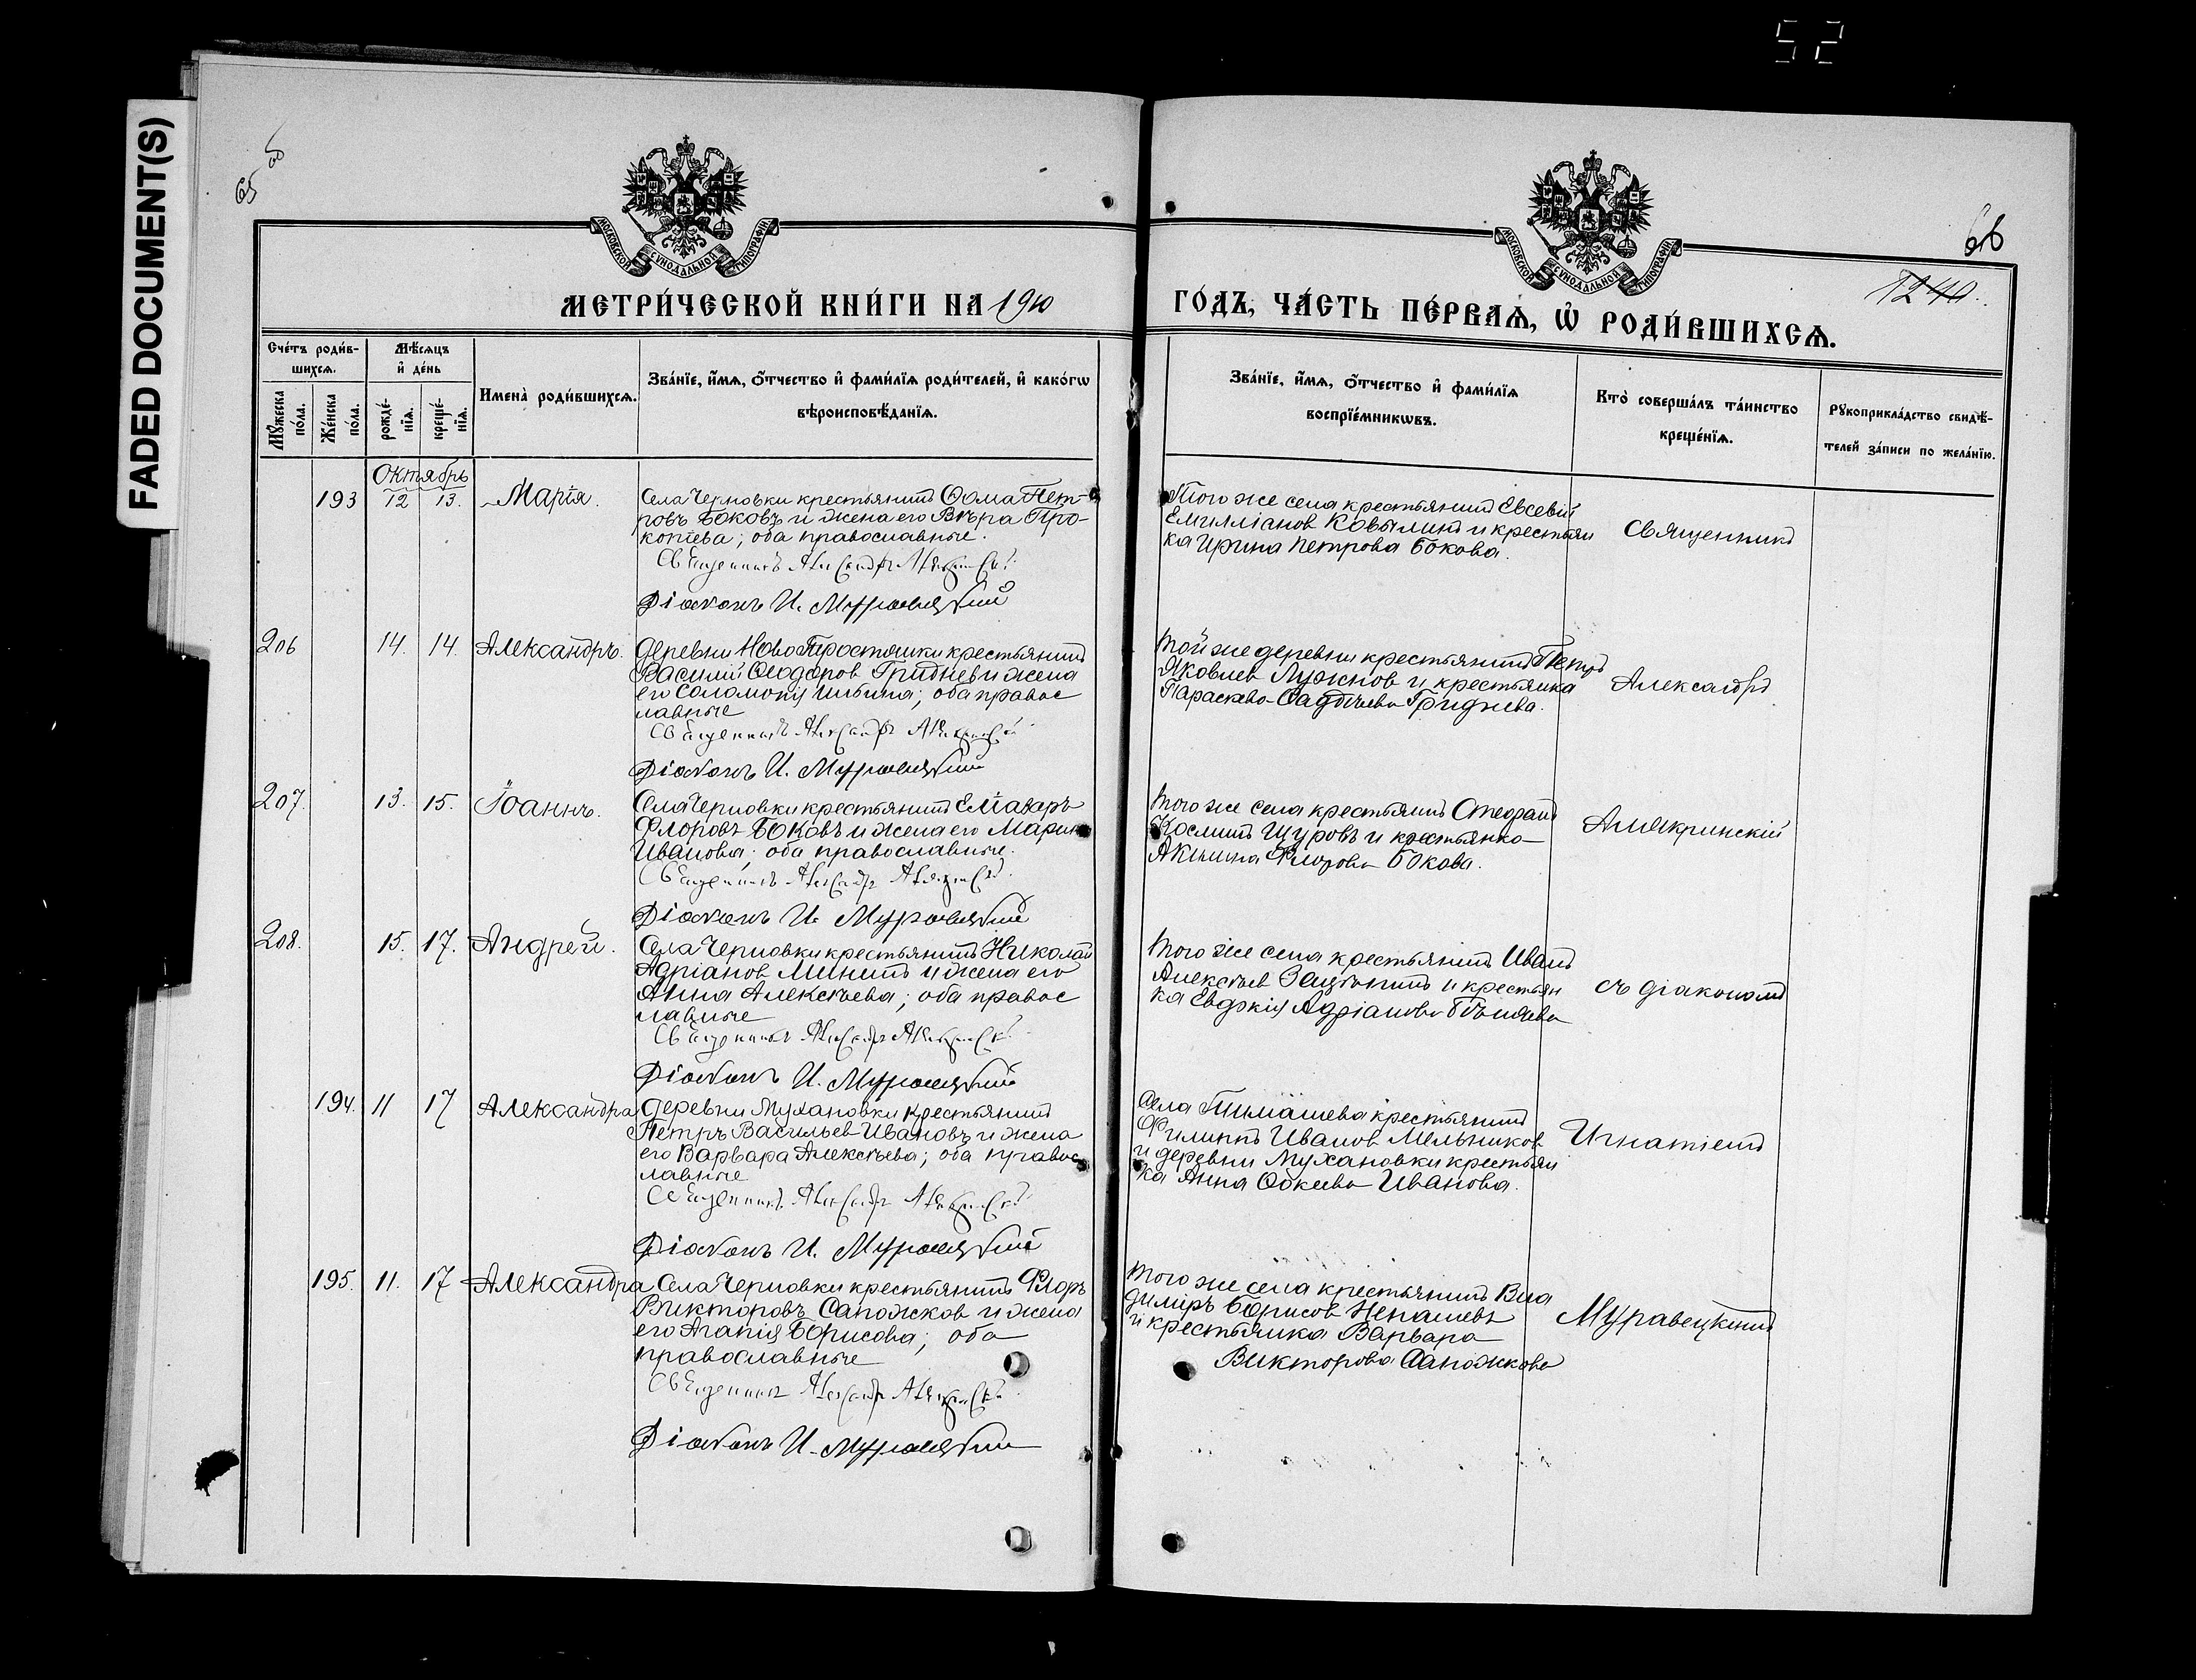 52
FADED DOCUMENT(S)
65 об
66
1240.
МОСКОВСКОЙ СУНОДАЛЬНОЙ ТИПОГРАФІИ
МОСКОВСКОЙ СУНОДАЛЬНОЙ ТИПОГРАФІИ
МЕТРИ́ЧЕСКОЙ КНИ́ГИ НА 1910
ГО́ДЪ, ЧА́СТЬ ПЕ́РВАѦ, Ѽ РОДИ́ВШИХСѦ.
Сче́тъ роди́в-
шихсѧ.
Мѣ́сѧцъ
и҆ де́нь
Мꙋ́жеска
по́ла.
Же́нска
по́ла.
рожде́-
нїѧ.
креще́-
нїѧ.
Имена̀ роди́вшихсѧ.
Зва́нїе, и҆́мѧ, ѻ҆́тчество и҆ фами́лїѧ роди́телей, и҆ како́гѡ
вѣроисповѣ́данїѧ.
Зва́нїе, и҆́мѧ, ѻ҆́тчество и҆ фами́лїѧ
воспрїе́мникѡвъ.
Кто̀ соверша́лъ та́инство
креще́нїѧ.
Рꙋкоприкла́дство свидѣ́-
телей за́писи по жела́нїю.
Октябрь
193 12 13. Марія.
Села Черновки крестьянинъ Ѳома Пет-
ровъ Боковъ и жена его Вѣра Про-
копіева; оба православные.
Священникъ Александръ Алякринскій
Діаконъ И. Муравецкий
Того же села крестьянинъ Евсевій
Емилліанов Ковылинъ и крестьян
ка Ирина Петрова Бокова.
Священникъ
206 14. 14. Александръ.
Деревни Ново Простяшки крестьянинъ
Василій Ѳеодоров Гриднев и жена
его Соломонія Ильина; оба правос
лавные
Священникъ Александръ Алякринскій
Діаконъ И. Муравецкий
Той же деревни крестьянинъ Петръ
Яковлев Лужнов и крестьянка
Параскева Гриднева.
Александръ
207. 13. 15. Іоаннъ.
Села Черновки крестьянинъ
Флоровъ Боковъ и жена его Марина
Иванова; оба православные.
Священникъ Александръ Алякринскій
Діаконъ И. Муравецкий
Того же села крестьянинъ Стефанъ
Космин Щуровъ и крестьянка
Акилина Флорова Бокова.
Алякринскій
208. 15. 17. Андрей.
Села Черновки крестьянинъ Николай
Адріанов Мининъ и жена его
Анна Алексѣева; оба правос
лавные
Священникъ Александръ Алякринскій
Діаконъ И. Муравецкий
Того же села крестьянинъ Иванъ
Алексѣев и крестьян
ка Евдокія Адріанова Бѣляева
съ діакономъ
194. 11 17 Александра
Деревни Мухановки крестьянинъ
Петръ Васильев Ивановъ и жена
его Варвара Алексѣева; оба правос
лавные
Священникъ Александръ Алякринскій
Діаконъ И. Муравецкий
Села Тимашева крестьянинъ
Филиппъ Иванов Мельников
и деревни Мухановки крестьян
ка Анна Иванова.
Игнатіемъ
195. 11. 17 Александра
Села Черновки крестьянинъ Флоръ
Викторовъ Сапожков и жена
его Агапія Борисова; оба
православные
Священникъ Александръ Алякринскій
Діаконъ И. Муравецкий
Того же села крестьянинъ Вла
диміръ Борисов Ненашевъ
и крестьянка Варвара
Викторова Сапожкова
Муравецкимъ